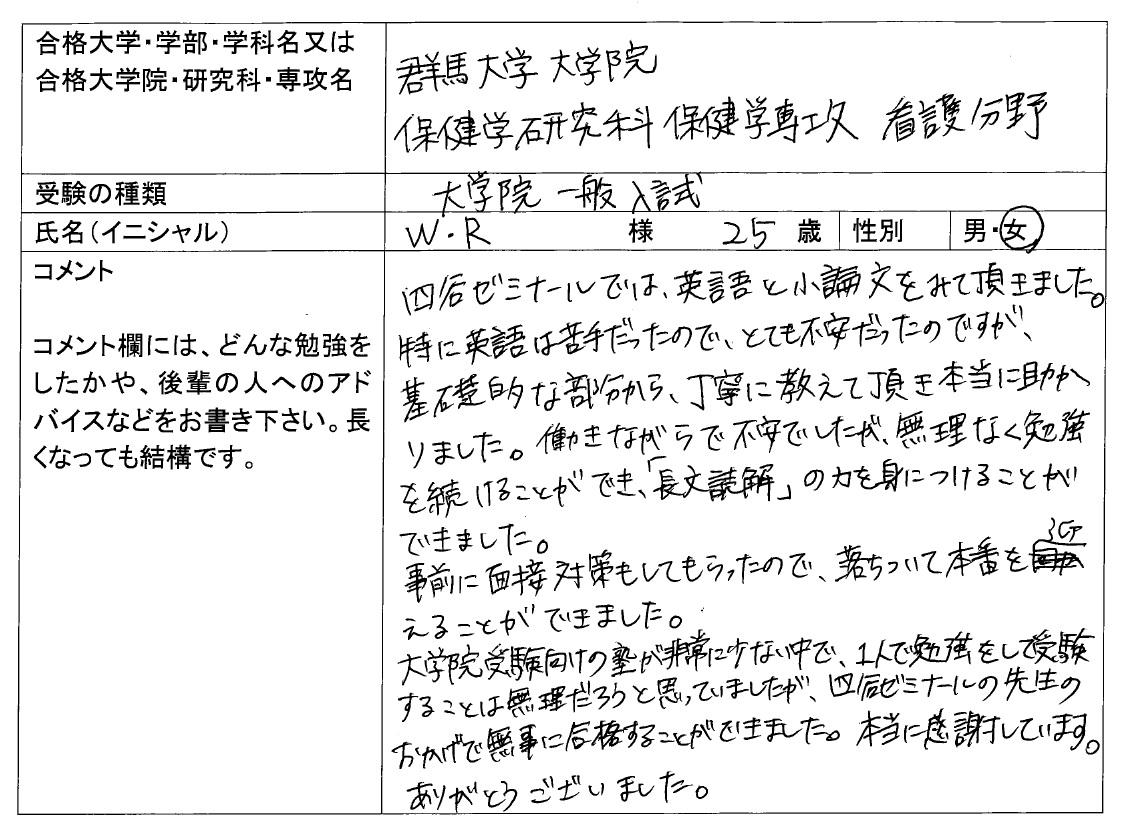 合格大学・学部・学科名又は
合格大学院・研究科・専攻名
群馬大学 大学院
保健学研究科 保健学専攻 看護分野
受験の種類
大学院 一般 入試
氏名(イニシャル)
W・R 様 25 歳 性別 男・女
コメント
コメント欄には、どんな勉強を
したかや、後輩の人へのアド
バイスなどをお書き下さい。長
くなっても結構です。
四谷ゼミナールでは、英語と小論文をみて頂きました。
特に英語は苦手だったので、とても不安だったのですが、
基礎的な部分から、丁寧に教えて頂き本当に助か
りました。働きながらで不安でしたが、無理なく勉強
を続けることができ、「長文読解」の力を身につけることが
できました。
事前に面接対策もしてもらったので、落ちついて本番を迎
えることができました。
大学院受験向けの塾が非常に少ない中で、1人で勉強をして受験
することは無理だろうと思っていましたが、四谷ゼミナールの先生の
おかげで無事に合格することができました。本当に感謝しています。
ありがとうございました。